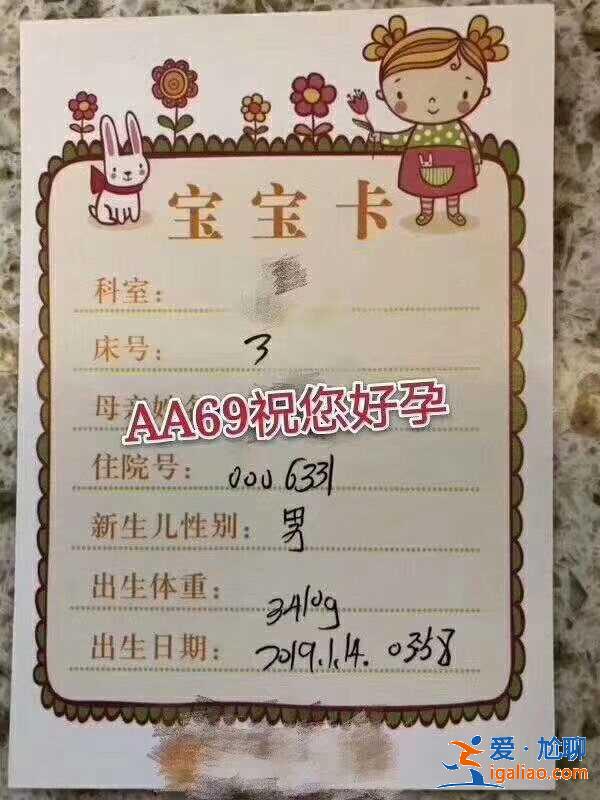 宝宝卡
科室：
床号： 3
母亲
AA69祝您好孕
住院号： 0006331
新生儿性别： 男
出生体重： 3410g
出生日期： 2019.1.14. 0358
爱·尬聊
igaliao.com